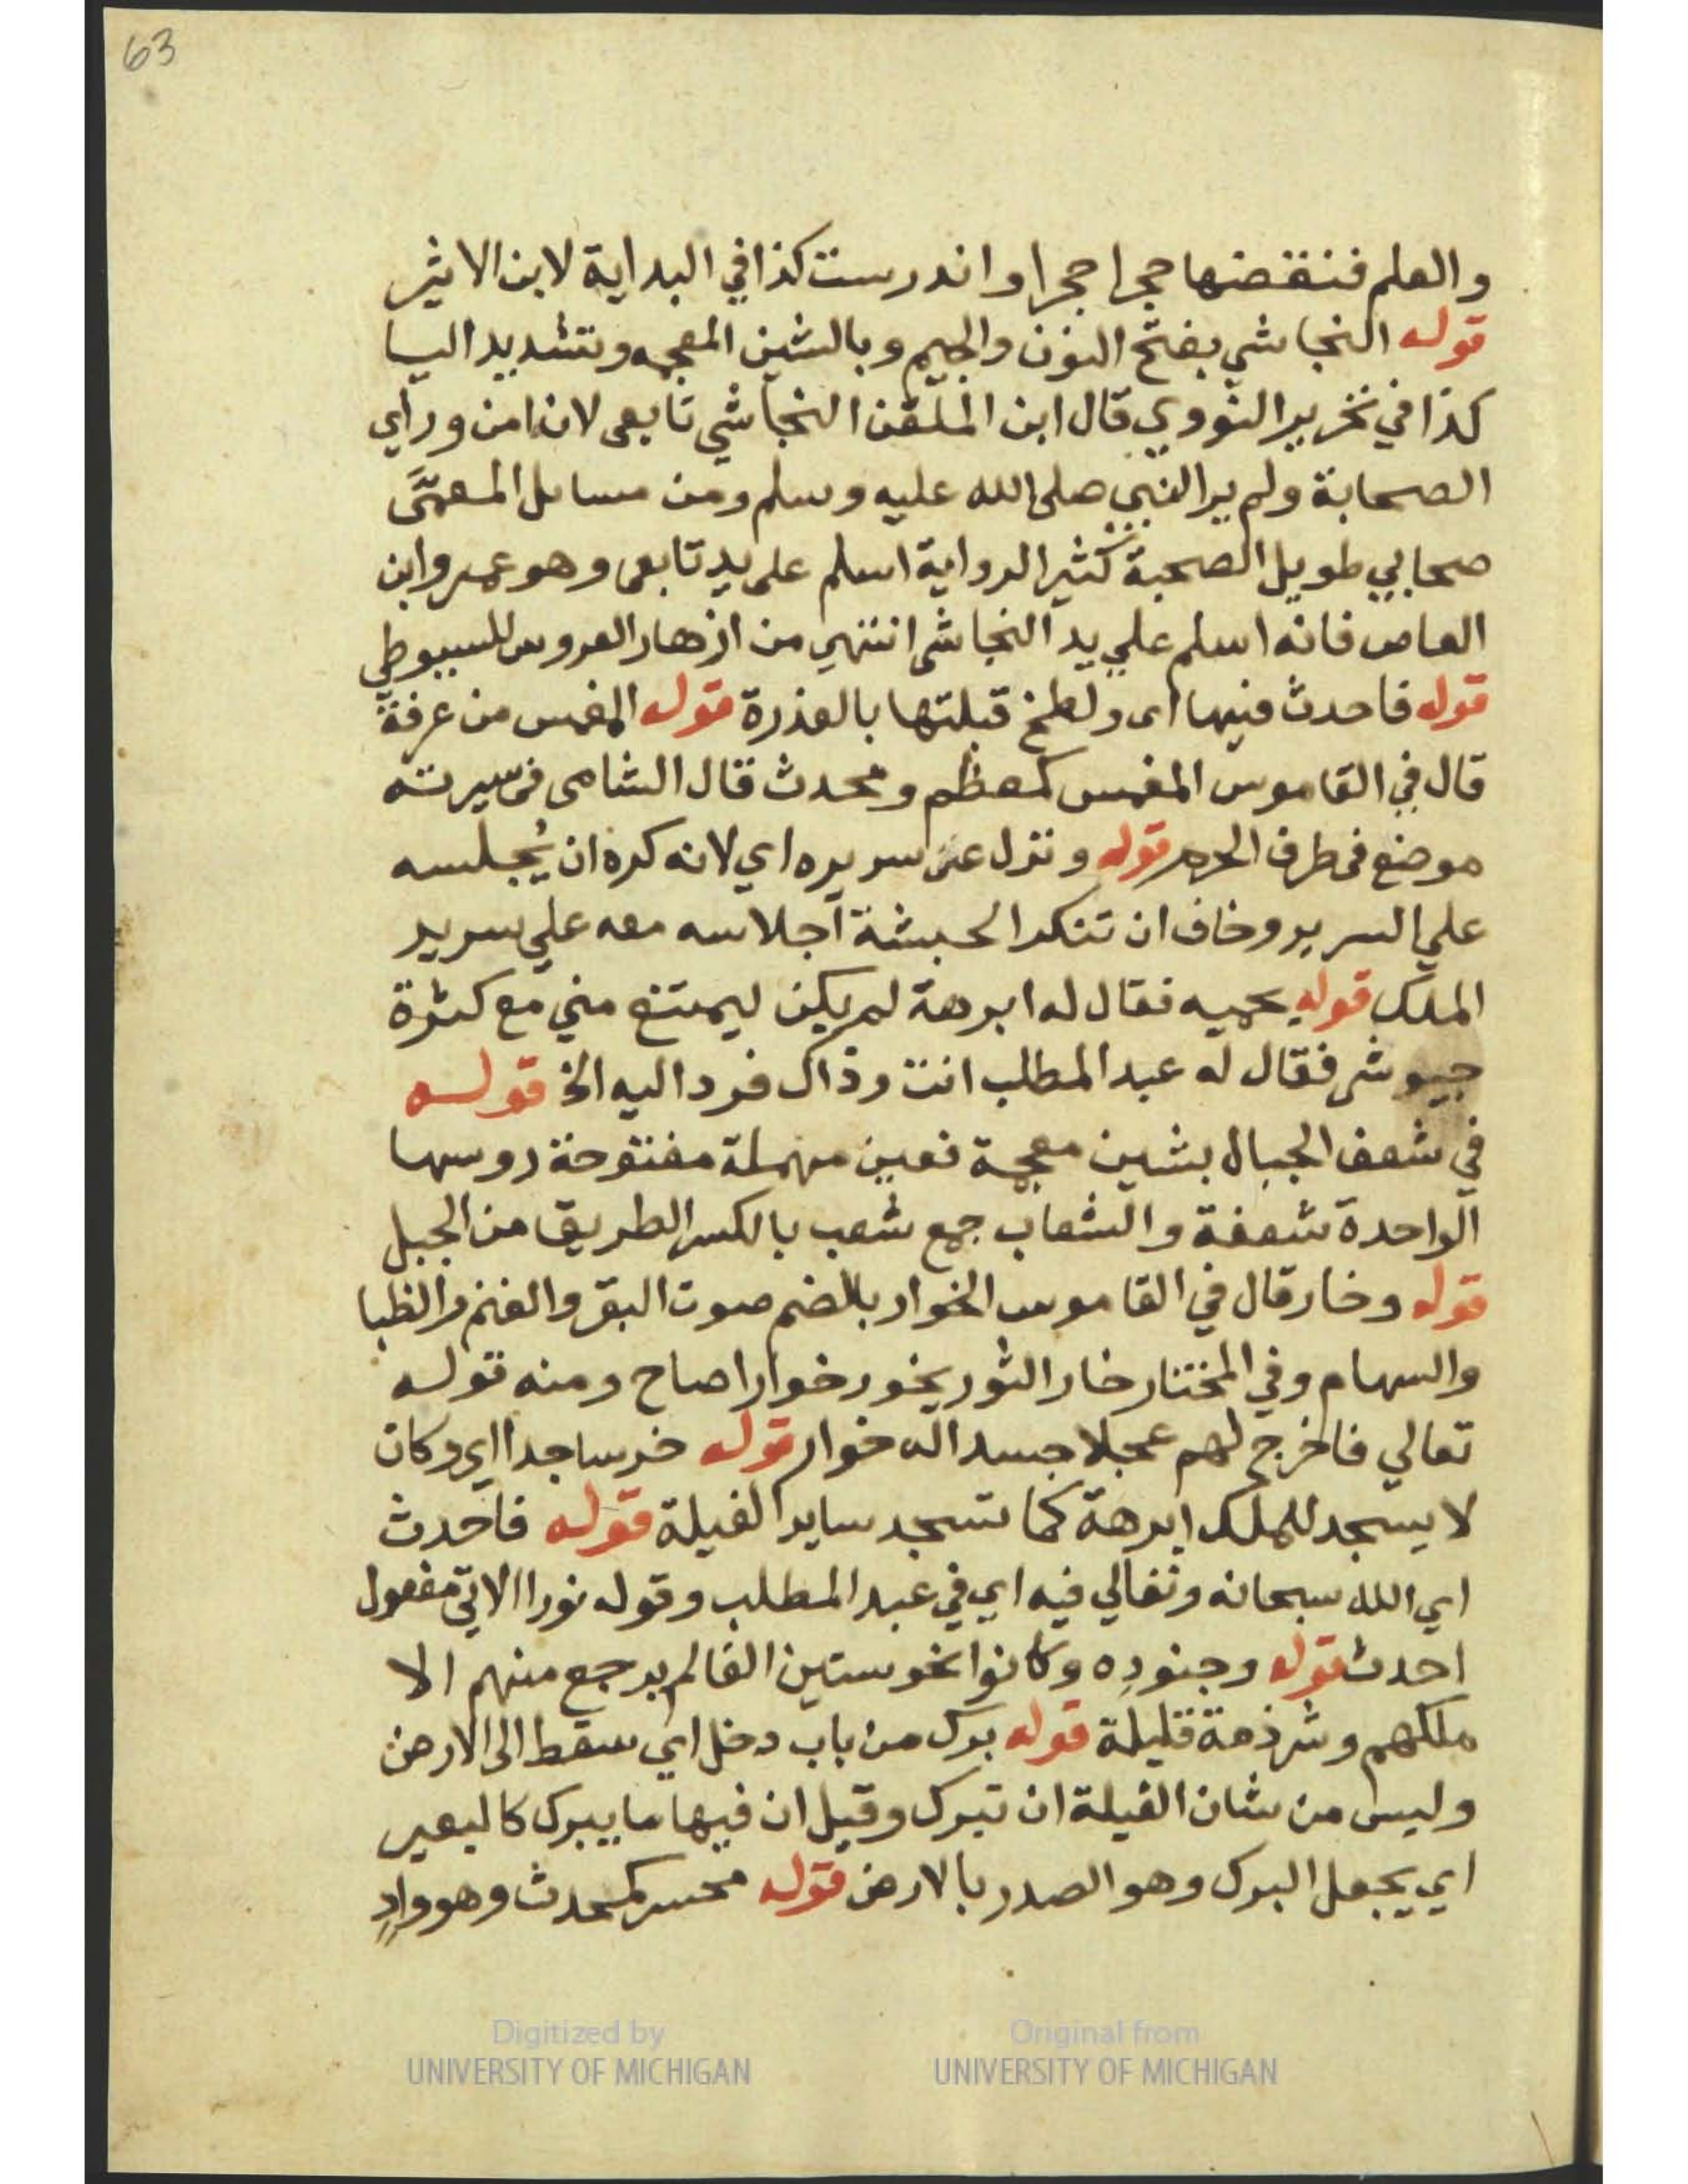 63
والعلم فنقضها حجرا حجرا واندرست كذا في البداية لابن الاثير
قوله النجاشي بفتح النون والجيم وبالشين المعجمه وتشديد اليا
كذا في تحرير النووي قال ابن الملقن النجاشي تابعى لانه امن وراي
الصحابة ولم ير النبي صلى الله عليه وسلم ومن مسايل المعمَّى
صحابي طويل الصحبة كثير الرواية اسلم على يد تابعى وهو عمرو ابن
العاص فانه اسلم علي يد النجاشى انتهي من ازهار العروس للسيوطي
قوله فاحدث فيها اى ولطخ قبلتها بالعذرة قوله المغمس من عرفة
قال في القاموس المغمس كمعظم ومحدث قال الشامى فى سيرته
موضع فى طرف الحرم قوله ونزل عن سريره اي لانه كره ان يُجلسه
علي السرير وخاف ان تنكر الحبشة اجلاسه معه علي سرير
الملك قوله يحميه فقال له ابرهة لم يكن ليمتنع مني مع كثرة
جيوشى فقال له عبد المطلب انت وذاك فرد اليه الخ قوله
في شعف الجبال بشين معجمة فعين مهملة مفتوحة روسها
الواحدة شعفة والشعاب جمع شعب بالكسر الطريق من الجبل
قوله وخار قال في القاموس الخوار بالضم صوت البقر والغنم والظبا
والسهام وفي المختار خار الثور يخور خوارا صاح ومنه قوله
تعالي فاخرج لهم عجلا جسدا له خوار قوله خر ساجدا اي وكان
لا يسجد للملك ابرهة كما تسجد ساير الفيلة قوله فاحدث
اي الله سبحانه وتعالي فيه اي في عبد المطلب وقوله نورا الاتي مفعول
احدث قوله وجنودِه وكانوا نحو ستين الفا لم يرجع منهم الا
ملكهم وشرذمة قليلة قوله برك من باب دخل اي سقط الى الارض
وليس من شان الفيلة ان تبرك وقيل ان فيها ما يبرك كالبعير
اي يجعل البرك وهو الصدر بالارض قوله محسر كمحدث وهو وادٍ
Digitized by
UNIVERSITY OF MICHIGAN
Original from
UNIVERSITY OF MICHIGAN